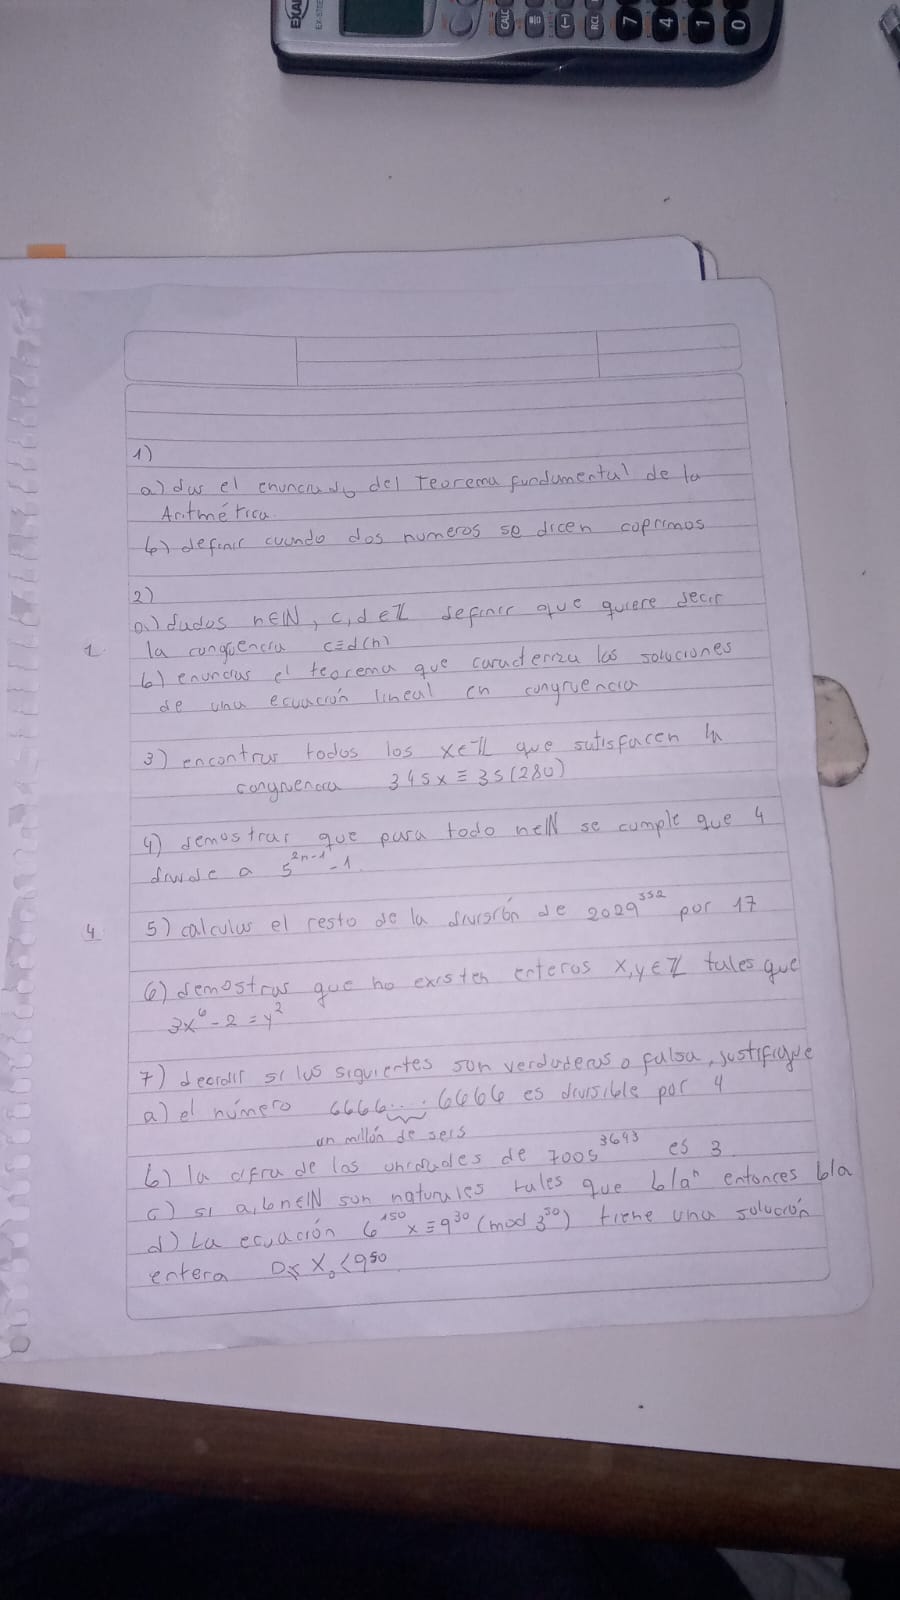 CALC
(-)
RCL
7
4
1
0
1)
a) dar el enunciado del Teorema fundamental de la
Aritmética.
b) definir cuando dos numeros se dicen coprimos
2)
a) dados n∈ℕ, c,d∈ℤ definir que quiere decir
1. la congruencia c≡d(n)
b) enunciar el teorema que caracteriza las soluciones
de una ecuación lineal en congruencia
3) encontrar todos los x∈ℤ que satisfacen la
congruencia 345x≡35(280)
4) demostrar que para todo n∈ℕ se cumple que 4
divide a 5^{2n-1}-1.
4 5) calcular el resto de la división de 2029^{352} por 17
6) demostrar que no existen enteros x,y∈ℤ tales que
3x^6-2=y^2
7) decidir si las siguientes son verdaderas o falsa, justifique
a) el número 6666...6666 es divisible por 4
un millón de seis
b) la cifra de las unidades de 7005^{3643} es 3.
c) si a,b,n∈ℕ son naturales tales que b|a^n entonces b|a
d) La ecuación 6^{150}x≡9^{30}(mod 3^{50}) tiene una solución
entera 0≤X₀<9^{50}